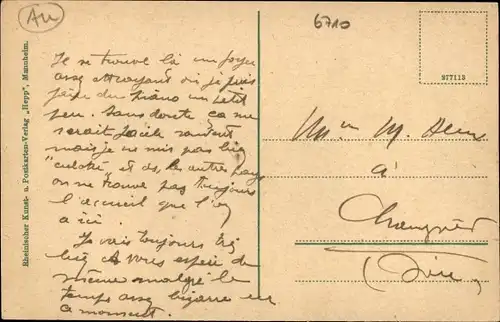 Au
6710
Rheinischer Kunst- u. Postkarten-Verlag „Hepp", Mannheim.
Je me trouve là un foyer
assez attrayant où je puis
faire du piano un petit
peu. Sans doute ça me
serait facile souvent
mais je ne suis pas bien
"culotté", et ds les autres pays
on ne trouve pas toujours
l'accueil que l'on
a ici.
Je vais toujours très
bien et vous espère de
même malgré le
temps assez bizarre en
ce moment.
977113
M.
à
(Isère)